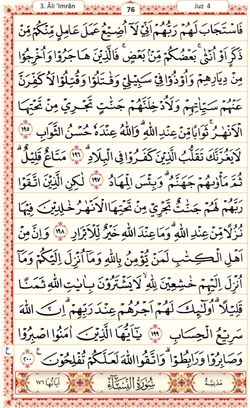 3. Āli 'Imrān 76 Juz 4
فَاسْتَجَابَ لَهُمْ رَبُّهُمْ اَنِّيْ لَاۤ اُضِيْعُ عَمَلَ عَامِلٍ مِّنْكُمْ مِّنْ
ذَكَرٍ اَوْ اُنْثٰى ۚ بَعْضُكُمْ مِّنْ بَعْضٍ ۚ فَالَّذِيْنَ هَاجَرُوْا وَاُخْرِجُوْا
مِنْ دِيَارِهِمْ وَاُوْذُوْا فِيْ سَبِيْلِيْ وَقٰتَلُوْا وَقُتِلُوْا لَاُكَفِّرَنَّ
عَنْهُمْ سَيِّاٰتِهِمْ وَلَاُدْخِلَنَّهُمْ جَنّٰتٍ تَجْرِيْ مِنْ تَحْتِهَا
الْاَنْهٰرُ ۚ ثَوَابًا مِّنْ عِنْدِ اللّٰهِ ۗ وَاللّٰهُ عِنْدَهٗ حُسْنُ الثَّوَابِ ١٩٥
لَا يَغُرَّنَّكَ تَقَلُّبُ الَّذِيْنَ كَفَرُوْا فِى الْبِلَادِ ١٩٦ مَتَاعٌ قَلِيْلٌ ۗ
ثُمَّ مَأْوٰىهُمْ جَهَنَّمُ ۗ وَبِئْسَ الْمِهَادُ ١٩٧ لٰكِنِ الَّذِيْنَ اتَّقَوْا
رَبَّهُمْ لَهُمْ جَنّٰتٌ تَجْرِيْ مِنْ تَحْتِهَا الْاَنْهٰرُ خٰلِدِيْنَ فِيْهَا
نُزُلًا مِّنْ عِنْدِ اللّٰهِ ۗ وَمَا عِنْدَ اللّٰهِ خَيْرٌ لِّلْاَبْرَارِ ١٩٨ وَاِنَّ مِنْ
اَهْلِ الْكِتٰبِ لَمَنْ يُّؤْمِنُ بِاللّٰهِ وَمَاۤ اُنْزِلَ اِلَيْكُمْ وَمَاۤ
اُنْزِلَ اِلَيْهِمْ خٰشِعِيْنَ لِلّٰهِ ۙ لَا يَشْتَرُوْنَ بِاٰيٰتِ اللّٰهِ ثَمَنًا
قَلِيْلًا ۗ اُولٰٓئِكَ لَهُمْ اَجْرُهُمْ عِنْدَ رَبِّهِمْ ۗ اِنَّ اللّٰهَ
سَرِيْعُ الْحِسَابِ ١٩٩ يٰۤاَيُّهَا الَّذِيْنَ اٰمَنُوا اصْبِرُوْا
وَصَابِرُوْا وَرَابِطُوْا ۗ وَاتَّقُوا اللّٰهَ لَعَلَّكُمْ تُفْلِحُوْنَ ٢٠٠
ع
مَدَنِيَّةٌ سُوْرَةُ النِّسَاۤءِ اٰيَاتُهَا ١٧٦